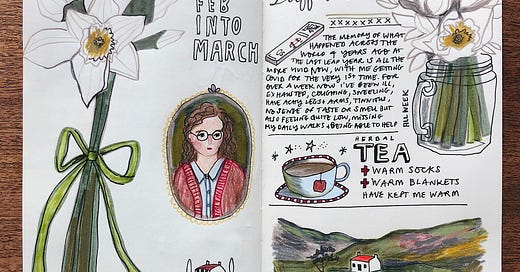 FEB
INTO
MARCH
THE MEMORY OF WHAT
HAPPENED ACROSS THE
WORLD 4 YEARS AGO AT
THE LAST LEAP YEAR IS ALL THE
MORE VIVID NOW, WITH ME GETTING
COVID FOR THE VERY 1ST TIME. FOR
OVER A WEEK NOW I'VE BEEN ILL,
EXHAUSTED, COUGHING, SNEEZING,
HAVE ACHY LEGS + ARMS,
NO SENSE OF TASTE OR SMELL BUT
ALSO FEELING QUITE LOW, MISSING
MY DAILY WALKS + BEING ABLE TO HELP
ALL WEEK
HERBAL
TEA
+ WARM SOCKS
+ WARM BLANKETS
HAVE KEPT ME WARM